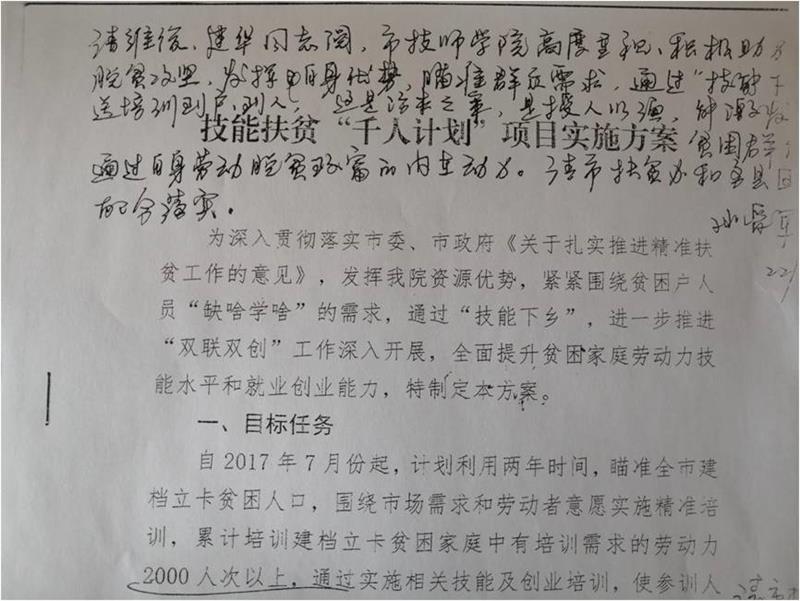 请维俊、建华同志阅，市技师学院高度重视、积极助力
脱贫攻坚，发挥自身优势，瞄准群众需求，通过“技能下
送培训到户到人，这是治本之策，是授人以渔，
技能扶贫“千人计划”项目实施方案
贫困群
通过自身劳动脱贫致富的内生动力。请市扶贫办和各县区
配合落实。
22/
为深入贯彻落实市委、市政府《关于扎实推进精准扶
贫工作的意见》，发挥我院资源优势，紧紧围绕贫困户人
员“缺啥学啥”的需求，通过“技能下乡”，进一步推进
“双联双创”工作深入开展，全面提升贫困家庭劳动力技
能水平和就业创业能力，特制定本方案。
一、目标任务
自 2017 年 7 月份起，计划利用两年时间，瞄准全市建
档立卡贫困人口，围绕市场需求和劳动者意愿实施精准培
训，累计培训建档立卡贫困家庭中有培训需求的劳动力
2000 人次以上，通过实施相关技能及创业培训，使参训人